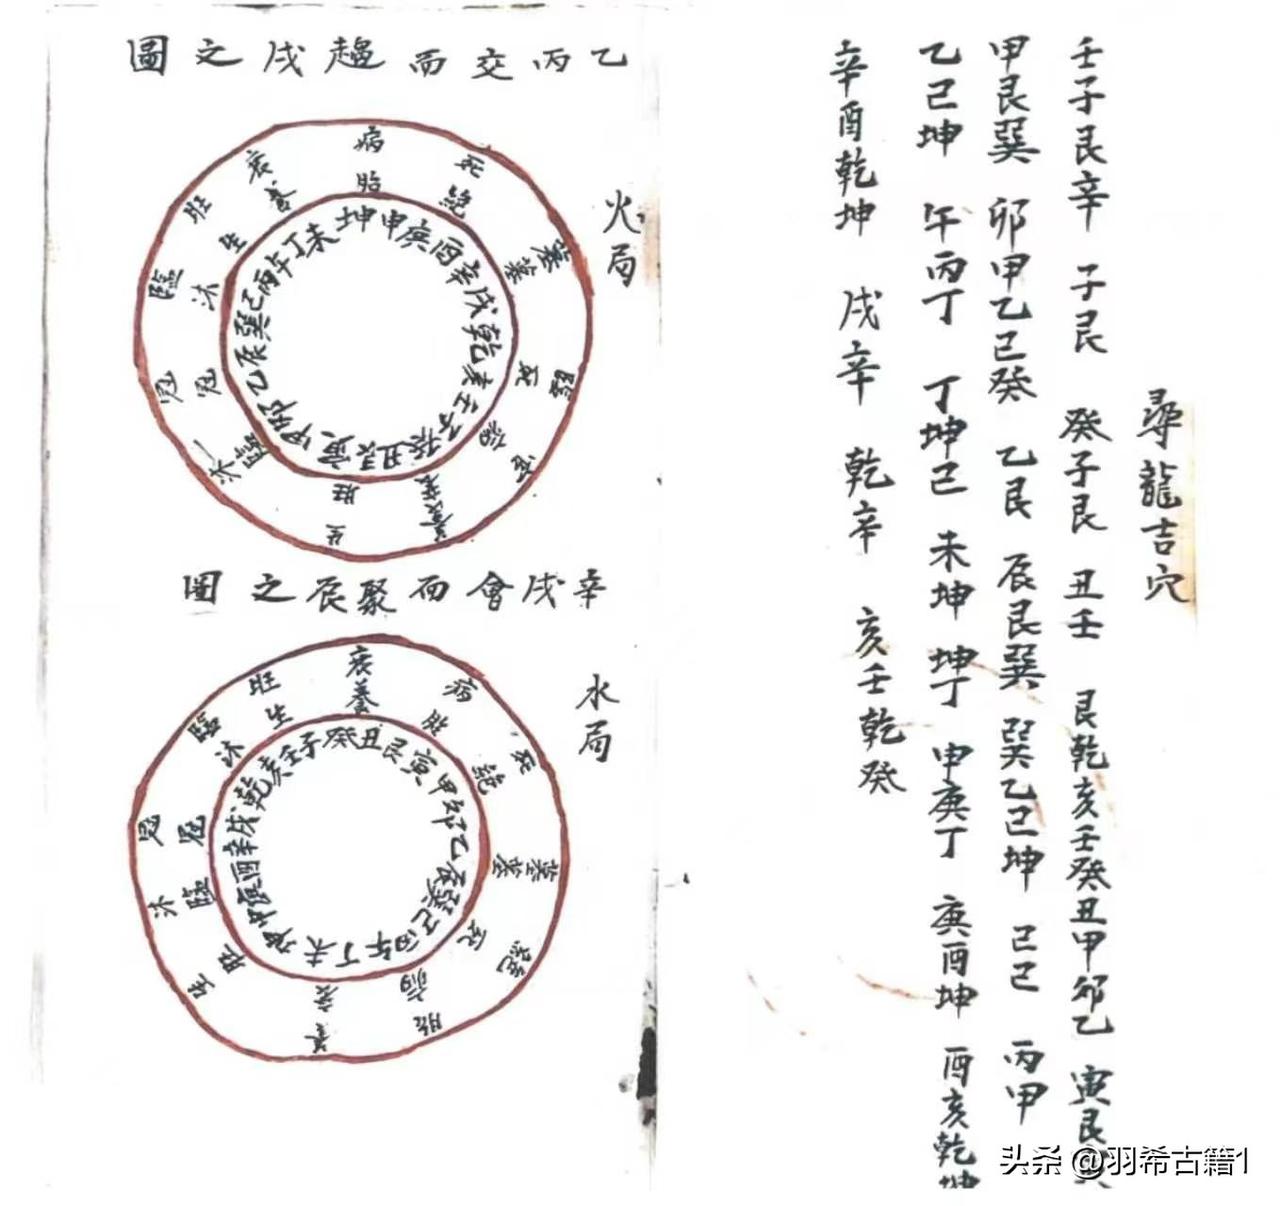 尋龍吉穴
壬子艮辛 子艮 癸子艮 丑壬 艮乾亥壬癸丑甲卯乙 寅艮
甲艮巽 卯甲乙巳癸 乙艮 辰艮巽 巽乙巳坤 己巳 丙甲
乙己坤 午丙丁 丁坤己 未坤 坤丁 申庚丁 庚酉坤 酉亥乾坤
辛酉乾坤 戌辛 乾辛 亥壬乾癸
乙丙交而趨戌之圖
火局
病 死 墓 臨 官 養 生 沐 冠 臨 旺 衰
胎 絕 墓 死 病 衰 旺 臨 冠 沐 生 養
坤申庚酉辛戌乾亥壬子癸丑艮寅甲卯乙辰巽巳丙午丁未
辛戌會而聚辰之圖
水局
衰 病 死 墓 絕 胎 養 生 沐 冠 臨 旺
養 胎 絕 墓 死 病 衰 旺 臨 冠 沐 生
癸丑艮寅甲卯乙辰巽巳丙午丁未坤申庚酉辛戌乾亥壬子
头条 @羽希古籍1